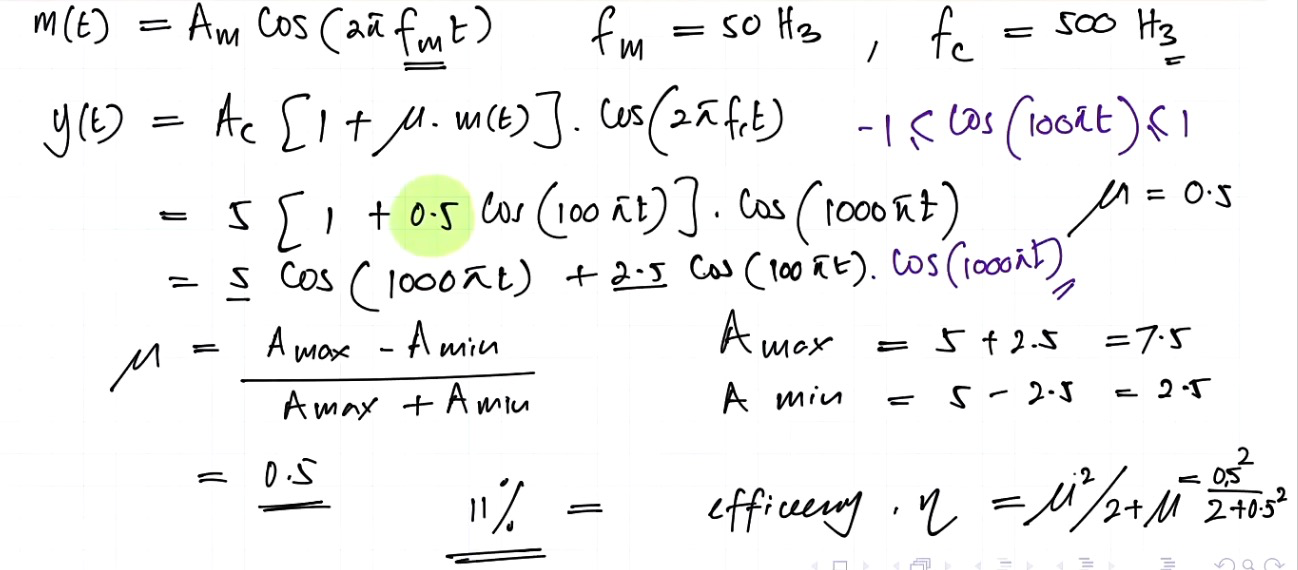 m(t) = Am Cos(2πfmt) fm = 50 Hz , fc = 500 Hz
y(t) = Ac [1 + μ. m(t)]. Cos(2πfct) -1 ≤ Cos(100πt) ≤ 1
= 5 [1 + 0.5 Cos(100πt)]. Cos(1000πt) μ = 0.5
= 5 Cos(1000πt) + 2.5 Cos(100πt). Cos(1000πt)
μ = Amax - Amin / Amax + Amin
Amax = 5 + 2.5 = 7.5
Amin = 5 - 2.5 = 2.5
= 0.5
11% = efficiency . η = μ²/2+μ = 0.5²/2+0.5²